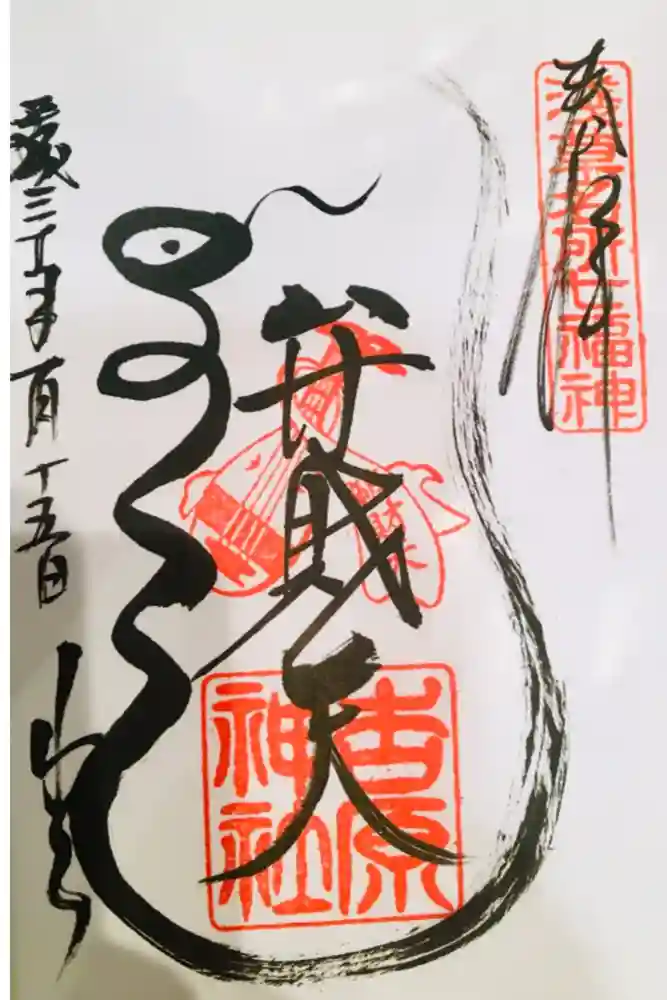 奉拝
淺草名所七福神
弁財天
吉原神社
平成三十年 月十五日